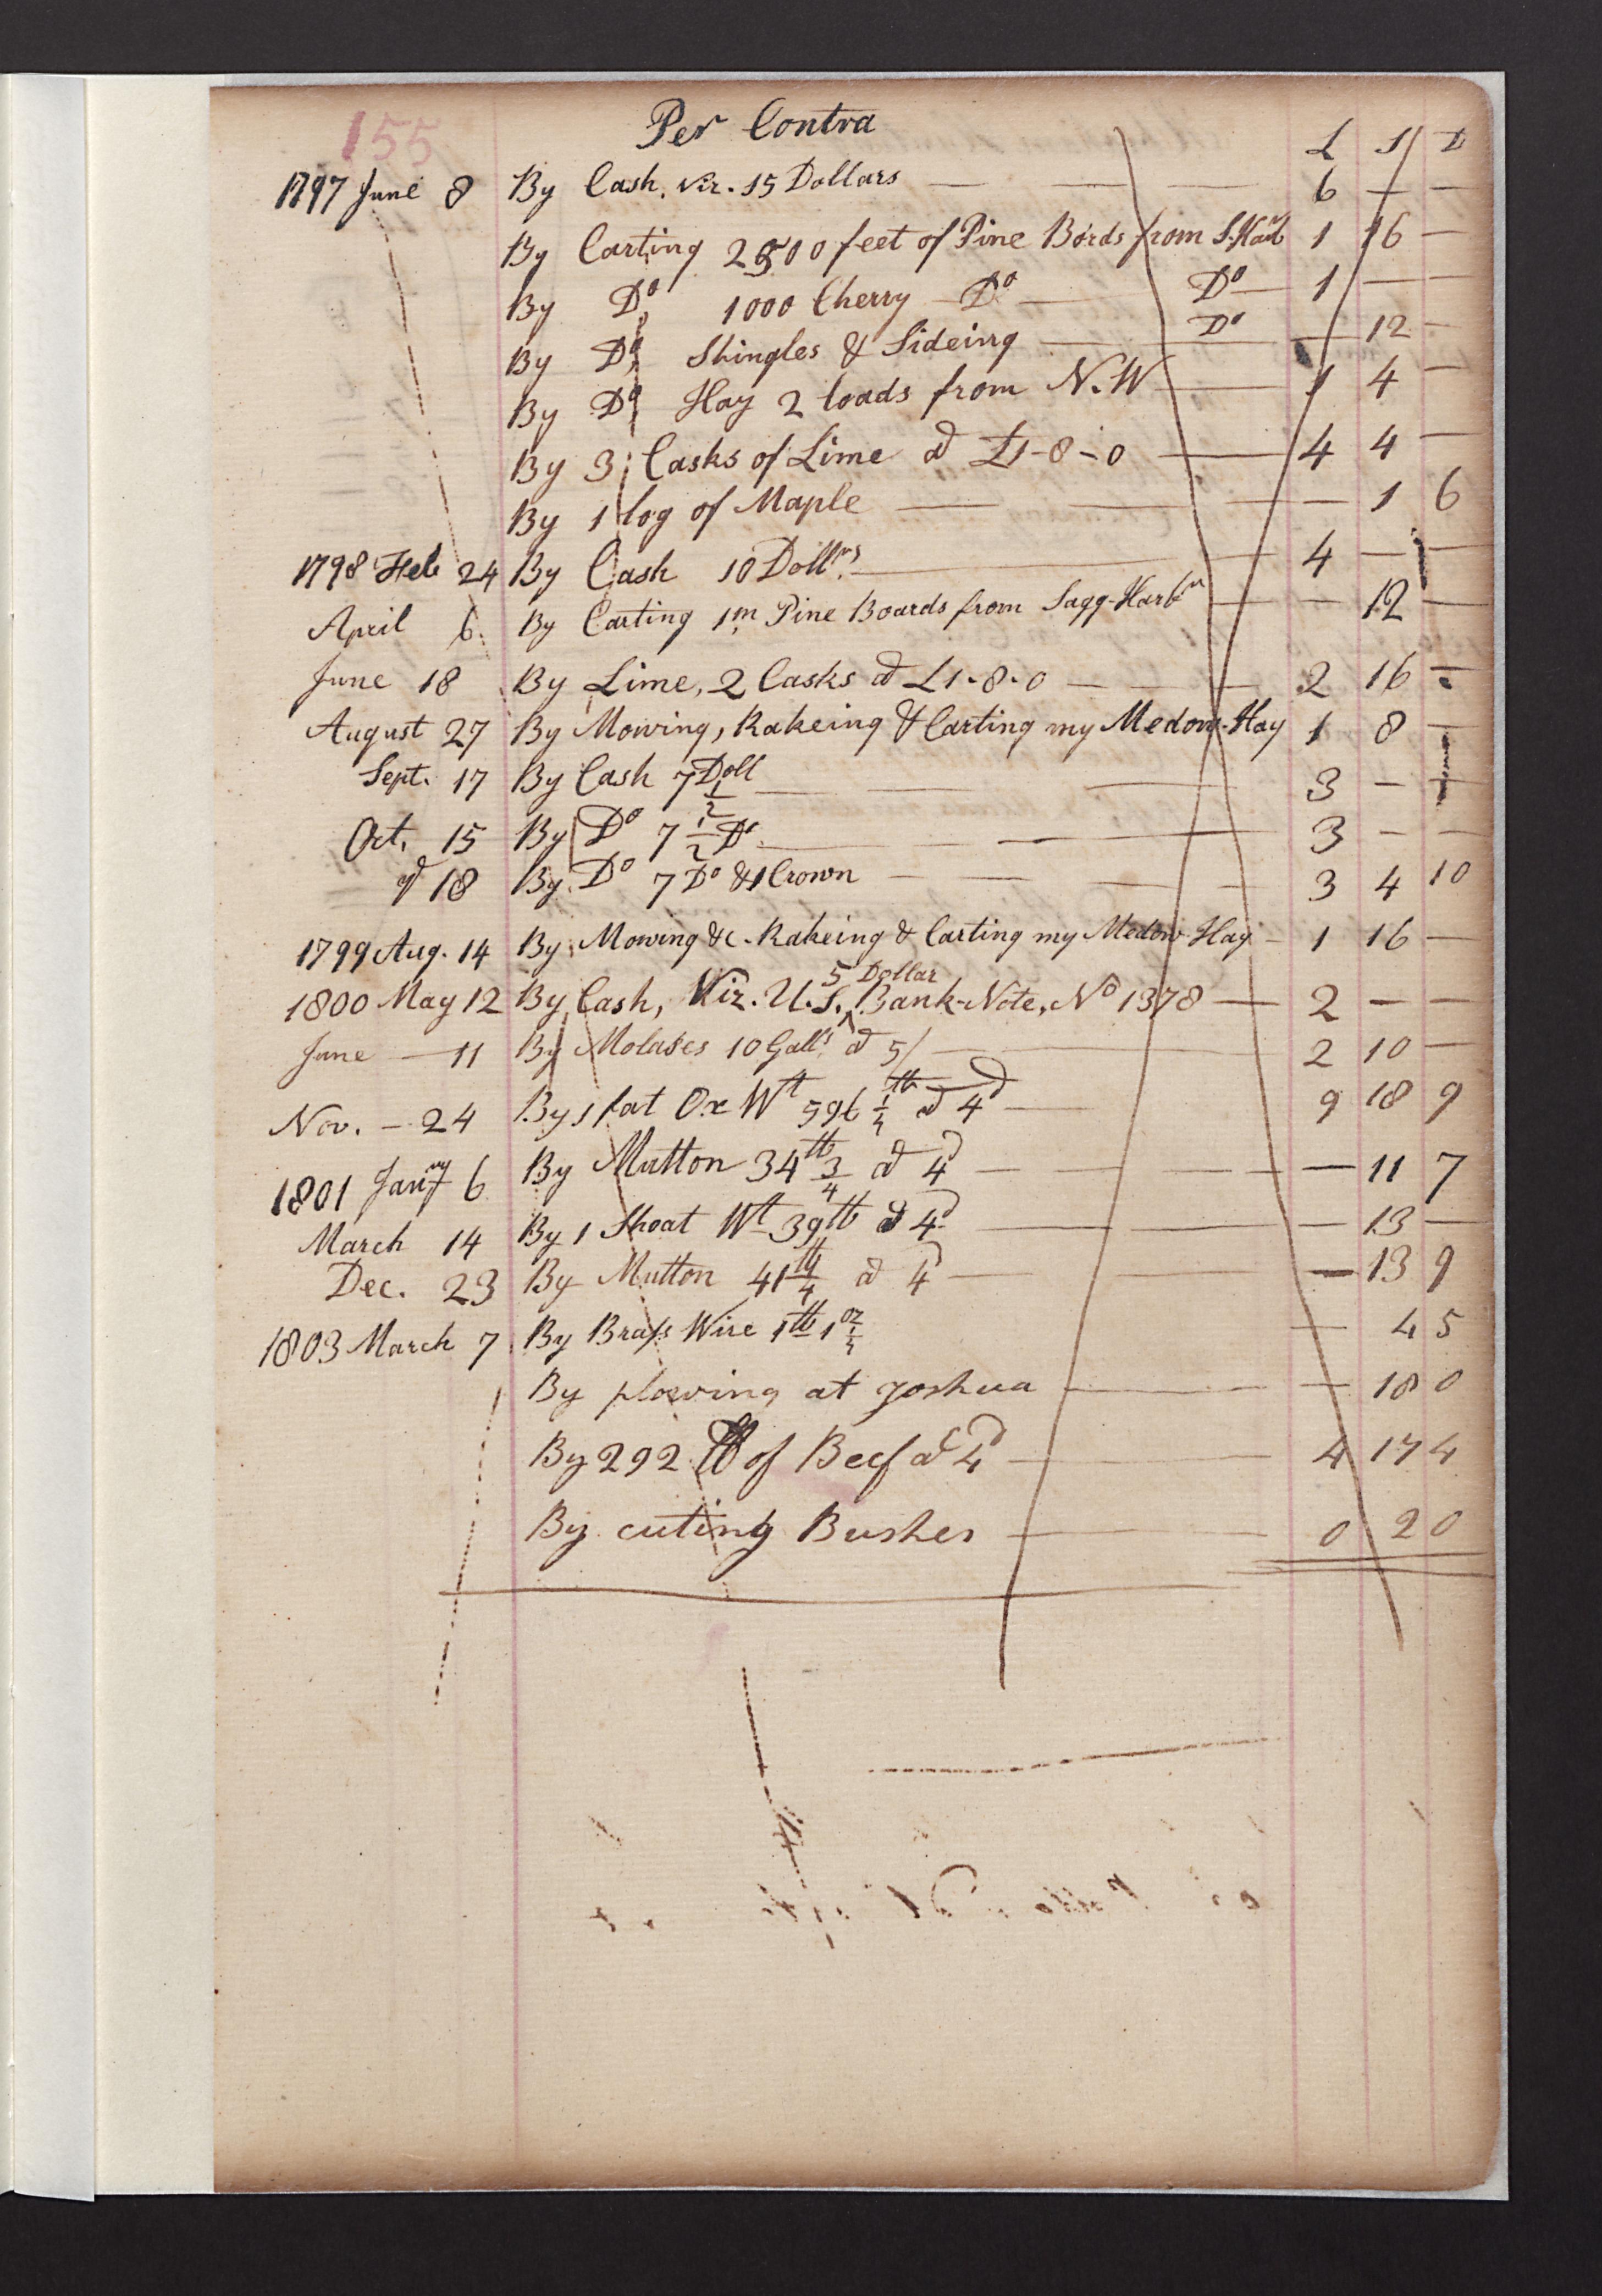 155
Per Contra
L S D
1797 June 8 By Cash, viz. 15 Dollars — — — 6 — —
By Carting 2500 feet of Pine Bords from S. Harb 1 16 —
By Do 1000 Cherry Do — Do — 1 — —
By Do Shingles & Sideing — Do — 12 —
By Do Hay 2 loads from N.W — 1 4 —
By 3 Casks of Lime @ £1-8-0 — 4 4 —
By 1 log of Maple — — — — 1 6
1798 Feb 24 By Cash 10 Dollrs. — 4 — —
April 6. By Carting 1m Pine Boards from Sagg-Harbr — — 12 —
June 18 By Lime, 2 Casks @ £1-8-0 — — 2 16 —
August 27 By Mowing, Rakeing & Carting my Medow-Hay 1 8 —
Sept. 17 By Cash 7 1/2 Doll — — — 3 — —
Oct. 15 By Do 7 1/2 Do. — — — 3 — —
18 By Do 7 Do & 1 Crown — — — 3 4 10
1799 Aug. 14 By Mowing &c. Rakeing & Carting my Medow Hay — 1 16 —
1800 May 12 By Cash, Viz. U.S. ^ 5 Dollar Bank-Note, No 1378 — 2 — —
June — 11 By Molases 10 Galls. @ 5/ — — 2 10 —
Nov. — 24 By 1 fat Ox Wt 596 1/4 lb @ 4d — 9 18 9
1801 Jany 6 By Mutton 34 lb 3/4 @ 4d — — — — 11 7
March 14 By 1 Shoat Wt 39 lb @ 4d — — — — 13 —
Dec. 23 By Mutton 41 lb 1/4 @ 4d — — — — 13 9
1803 March 7 By Brass Wire 1 lb 1 oz 1/4 — 4 5
By plowing at Joshua — — — — 18 0
By 292 lb of Beef @ 4d — — 4 17 4
By cuting Bushes — — 0 2 0